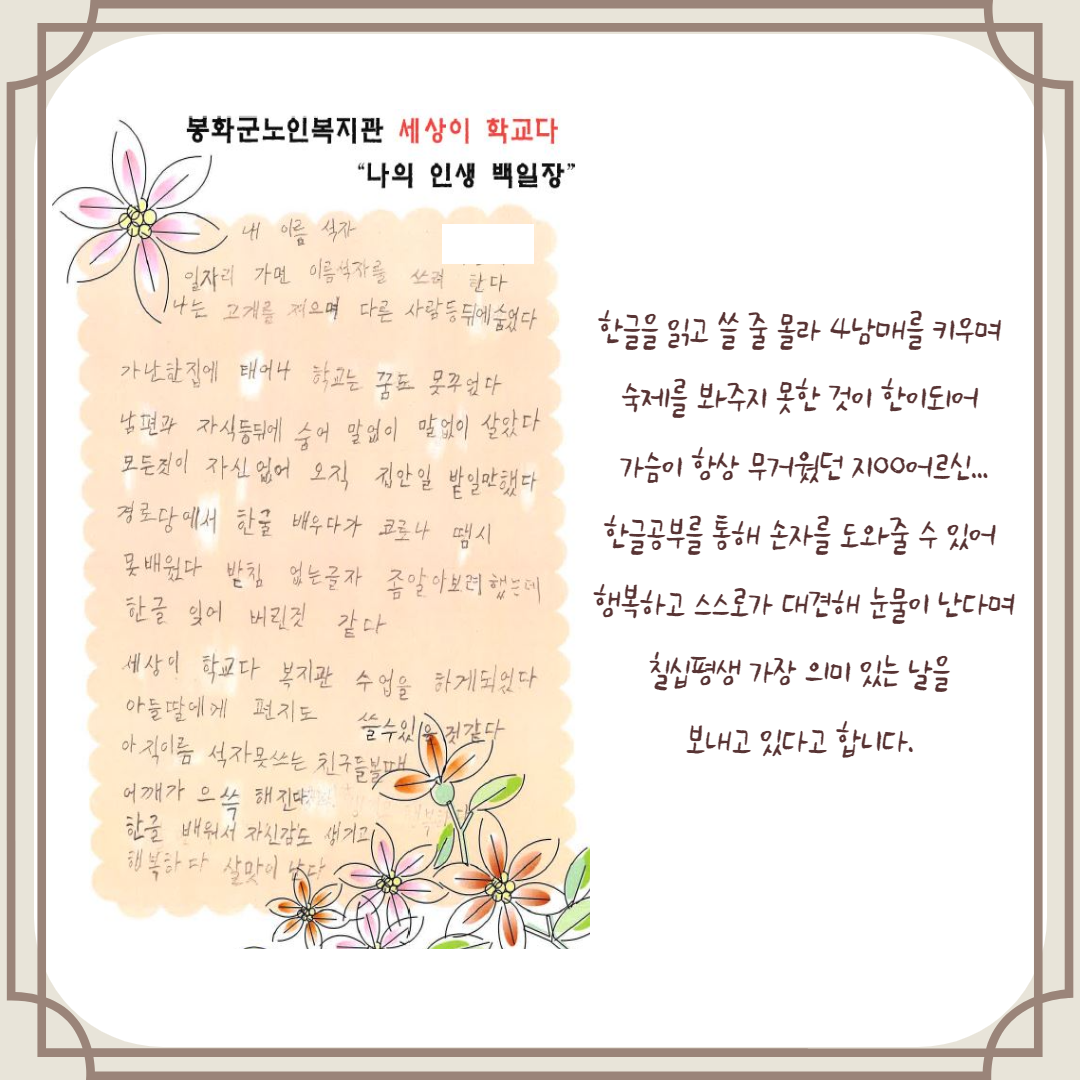 봉화군노인복지관 세상이 학교다
“나의 인생 백일장”
내 이름 석자
일자리 가면 이름석자를 쓰려 한다
나는 고개를 저으며 다른 사람등뒤에숨었다
가난한집에 태어나 학교는 꿈도 못꾸었다
남편과 자식등뒤에 숨어 말없이 말없이 살았다
모든것이 자신없어 오직 집안일 밭일만했다
경로당에서 한글 배우다가 코로나 땜시
못배웠다 받침 없는글자 좀알아보려했는데
한글 잊어 버린것 같다
세상이 학교다 복지관 수업을 하게되었다
아들딸에게 편지도 쓸수있을것같다
아직이름 석자못쓰는 친구들볼때
어깨가 으쓱해진다
한글 배워서 자신감도 생기고
행복하다 살맛이 난다
한글을 읽고 쓸 줄 몰라 4남매를 키우며
숙제를 봐주지 못한 것이 한이되어
가슴이 항상 무거웠던 지OO어르신...
한글공부를 통해 손자를 도와줄 수 있어
행복하고 스스로가 대견해 눈물이 난다며
칠십평생 가장 의미 있는 날을
보내고 있다고 합니다.